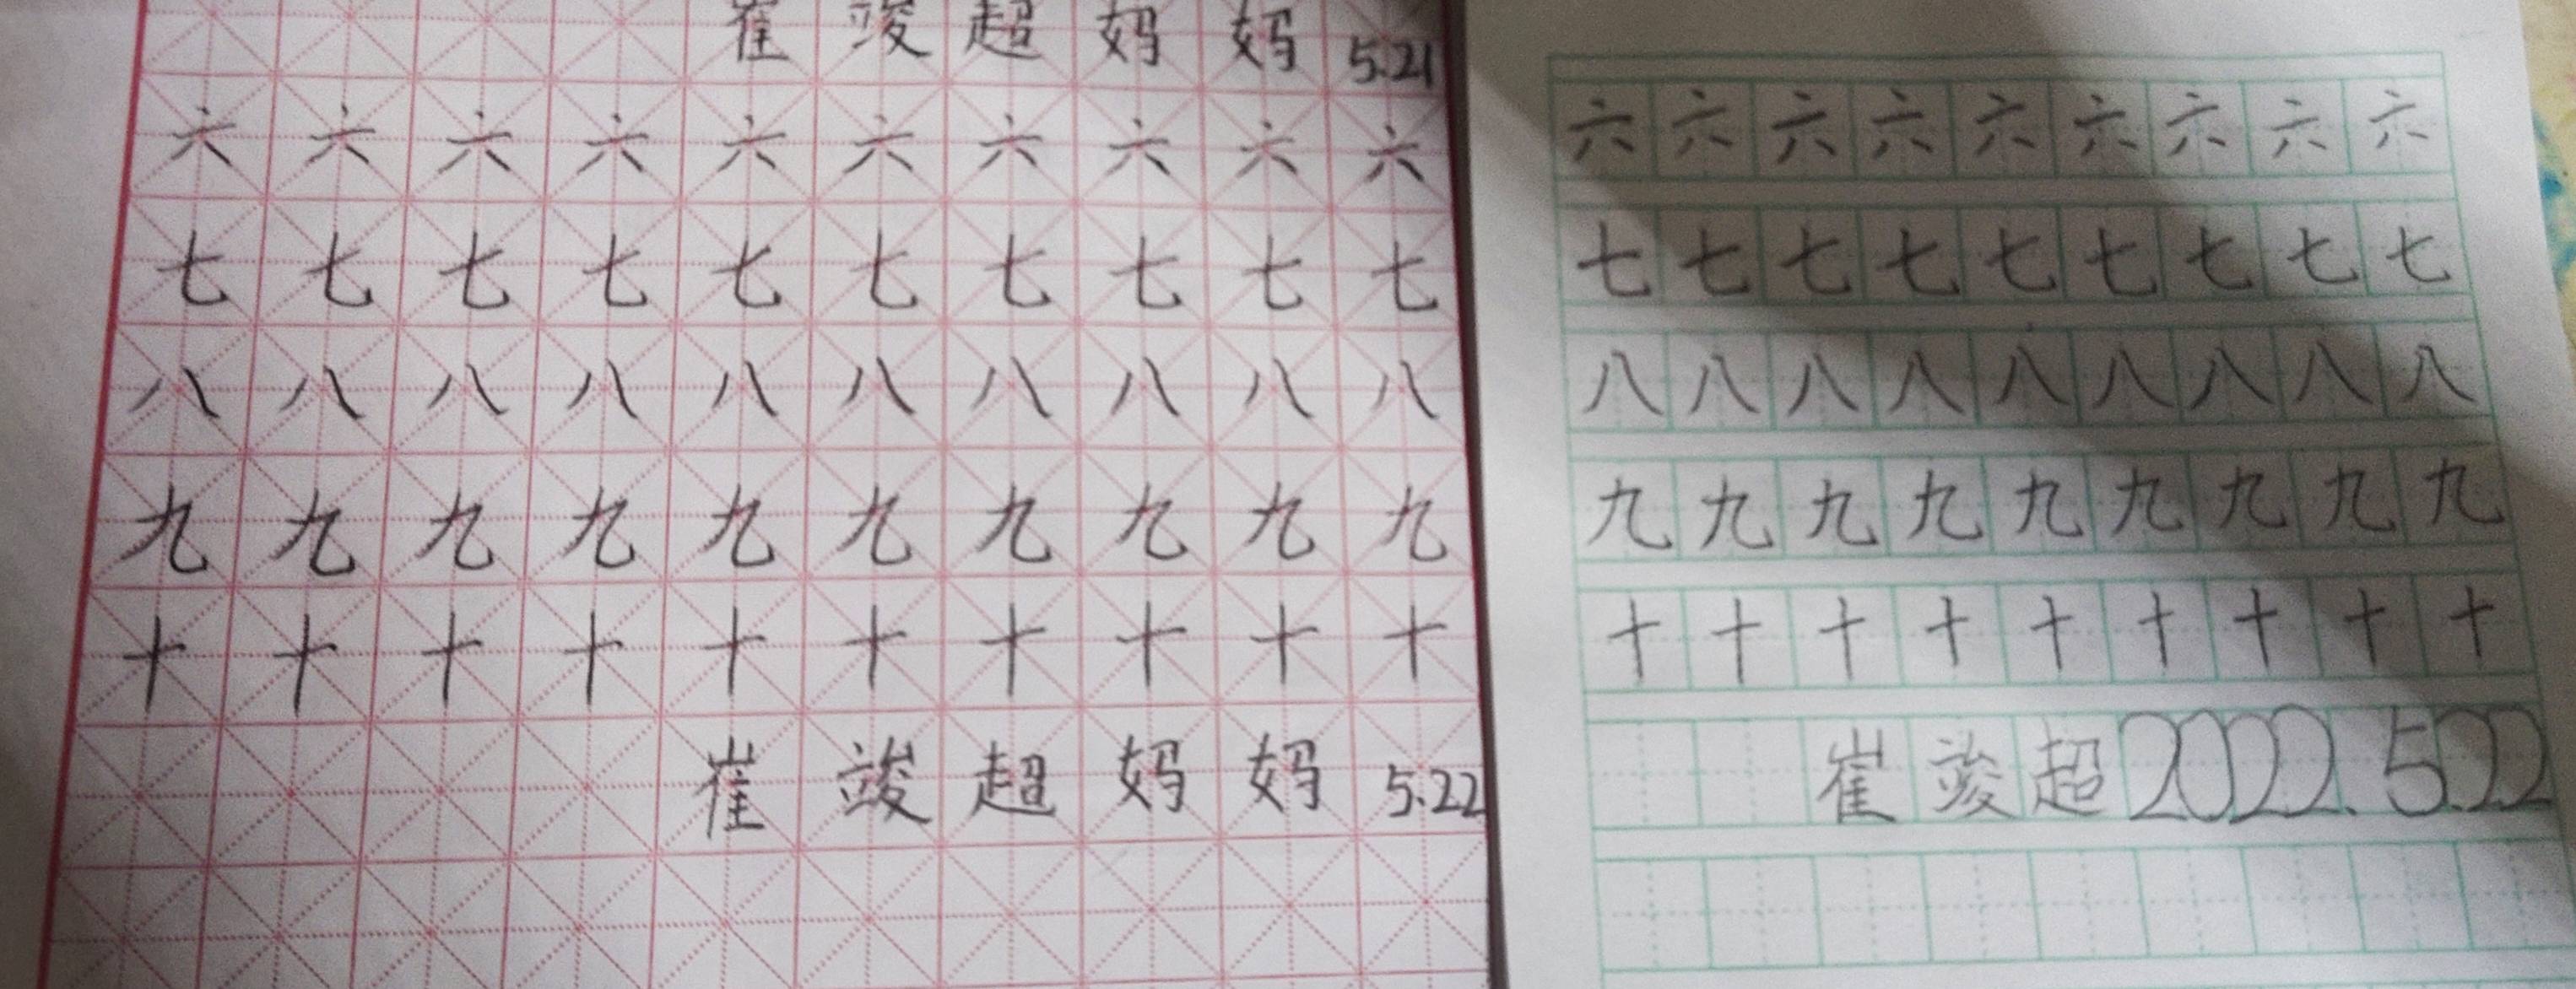 崔竣超妈妈 5.21
六六六六六六六六六六
七七七七七七七七七七
八八八八八八八八八八
九九九九九九九九九九
十十十十十十十十十十
崔竣超妈妈 5.22
六六六六六六六六六
七七七七七七七七七
八八八八八八八八八
九九九九九九九九九
十十十十十十十十十
崔竣超2022.5.22